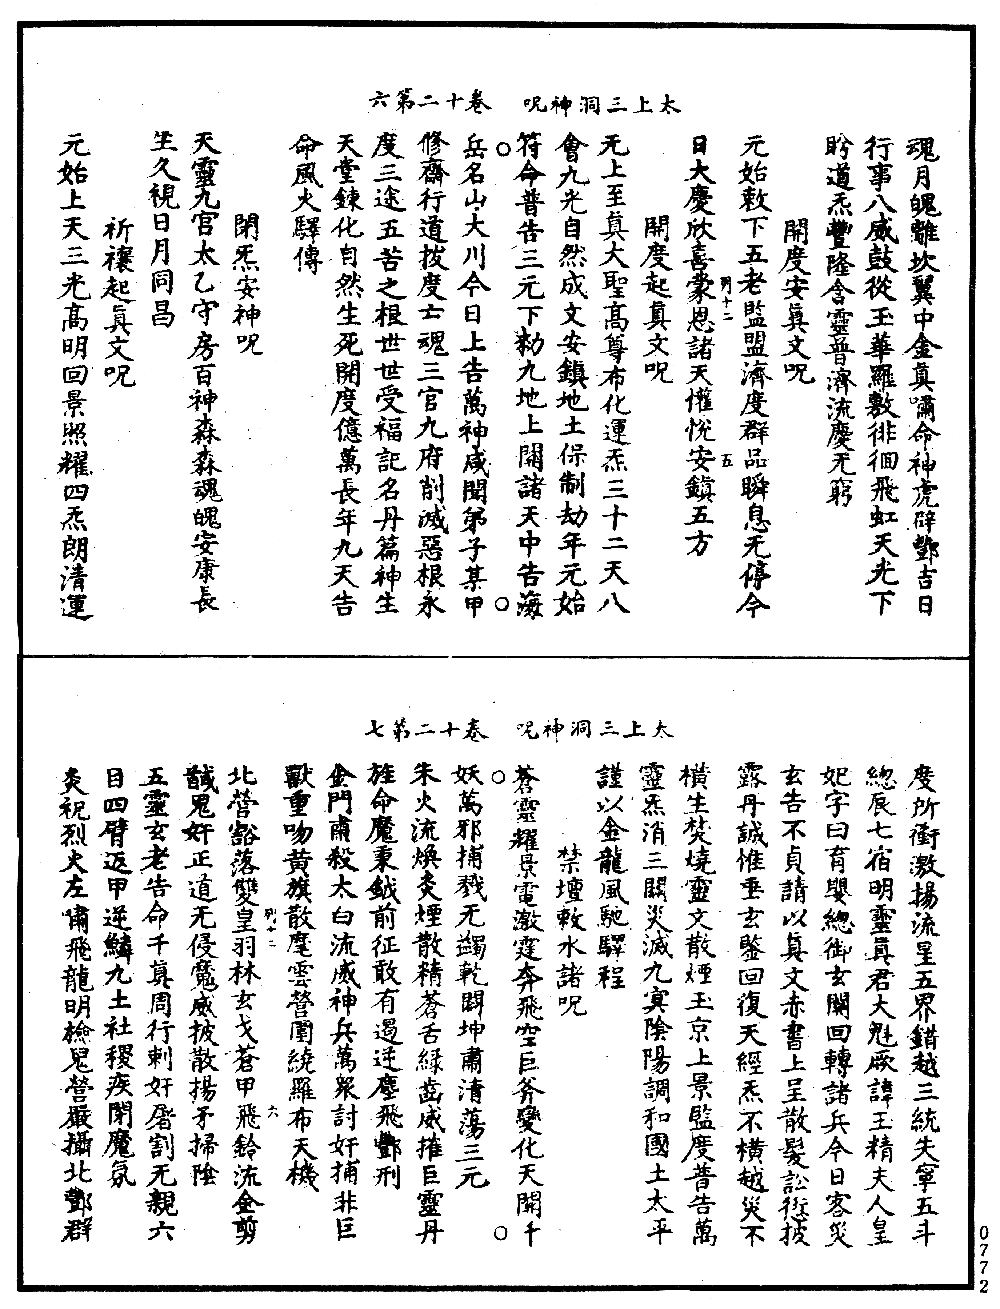 太上三洞神呪　卷十二第六
魂月魄離坎翼中金真嘯命神虎辟酆吉日
行事八威鼓從玉華羅敷徘徊飛虹天光下
盻道炁豐隆含靈普濟流慶无窮
開度安真文呪
元始敕下五老監盟濟度群品瞬息无停今
日大慶欣喜蒙恩諸天懽悅安鎮五方
開度起真文呪
无上至真大聖高尊布化運炁三十二天八
會九光自然成文安鎮地土保制劫年元始
符命普告三元下勑九地上開諸天中告海
岳名山大川今日上告萬神咸聞弟子某甲
修齋行道拔度亡魂三官九府削滅惡根永
度三途五苦之根世世受福記名丹篇神生
天堂鍊化自然生死開度億萬長年九天告
命風火驛傳
閉炁安神呪
天靈九官太乙守房百神森森魂魄安康長
生久視日月同昌
祈禳起真文呪
元始上天三光高明回景照耀四炁朗清運
太上三洞神呪　卷十二第七
度所衝激揚流星五界錯越三統失寧五斗
總辰七宿明靈真君大魁厥諱王精夫人皇
妃字曰育嬰總御玄關回轉諸兵今日客災
玄告不貞請以真文赤書上呈散髮訟愆披
露丹誠惟垂玄鑒回復天經炁不橫越災不
橫生焚燒靈文散煙玉京上景監度普告萬
靈炁消三關災滅九冥陰陽調和國土太平
謹以金龍風馳驛程
禁壇敕水諸呪
蒼靈耀景電激霆奔飛空巨斧變化天關千
妖萬邪捕戮无蠲乾闢坤肅清蕩三元
朱火流煥炎煙散精蒼舌綠齒威摧巨靈丹
旌命魔秉鉞前征敢有遏逆塵飛酆刑
金門肅殺太白流威神兵萬衆討奸捕非巨
獸重吻黃旗散麾雲營圍繞羅布天機
北營豁落雙皇羽林玄戈蒼甲飛鈴流金剪
馘鬼奸正道无侵魔威披散揚矛掃陰
五靈玄老告命千真周行剌奸屠割无親六
目四臂返甲逆鱗九土社稷疾閉魔氛
炎祝烈火左嘯飛龍明檢鬼營嚴攝北酆群
列十二
五
列十二
六
0772